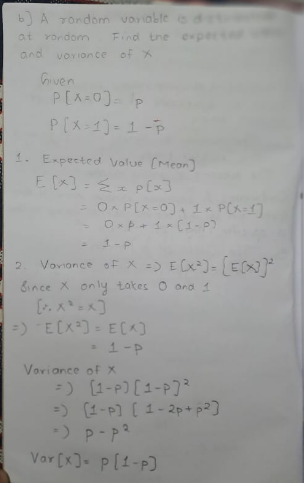 b] A random variable is distributed
at random Find the expected value
and variance of X
Given
P[X=0] = p
P[X=1] = 1 - p
1. Expected Value [Mean]
E[x] = Σ x p[x]
= 0 × P[X=0] + 1 × P[X=1]
= 0×p + 1 × (1-p)
= 1-p
2. Variance of X => E[X²] = [E[X]]²
Since X only takes 0 and 1
[∴ X² = x]
=) E[X²] = E[X]
= 1-p
Variance of X
=) [1-p] [1-p]²
=) [1-p] [1-2p+p²]
=) p - p²
Var[X] = p[1-p]